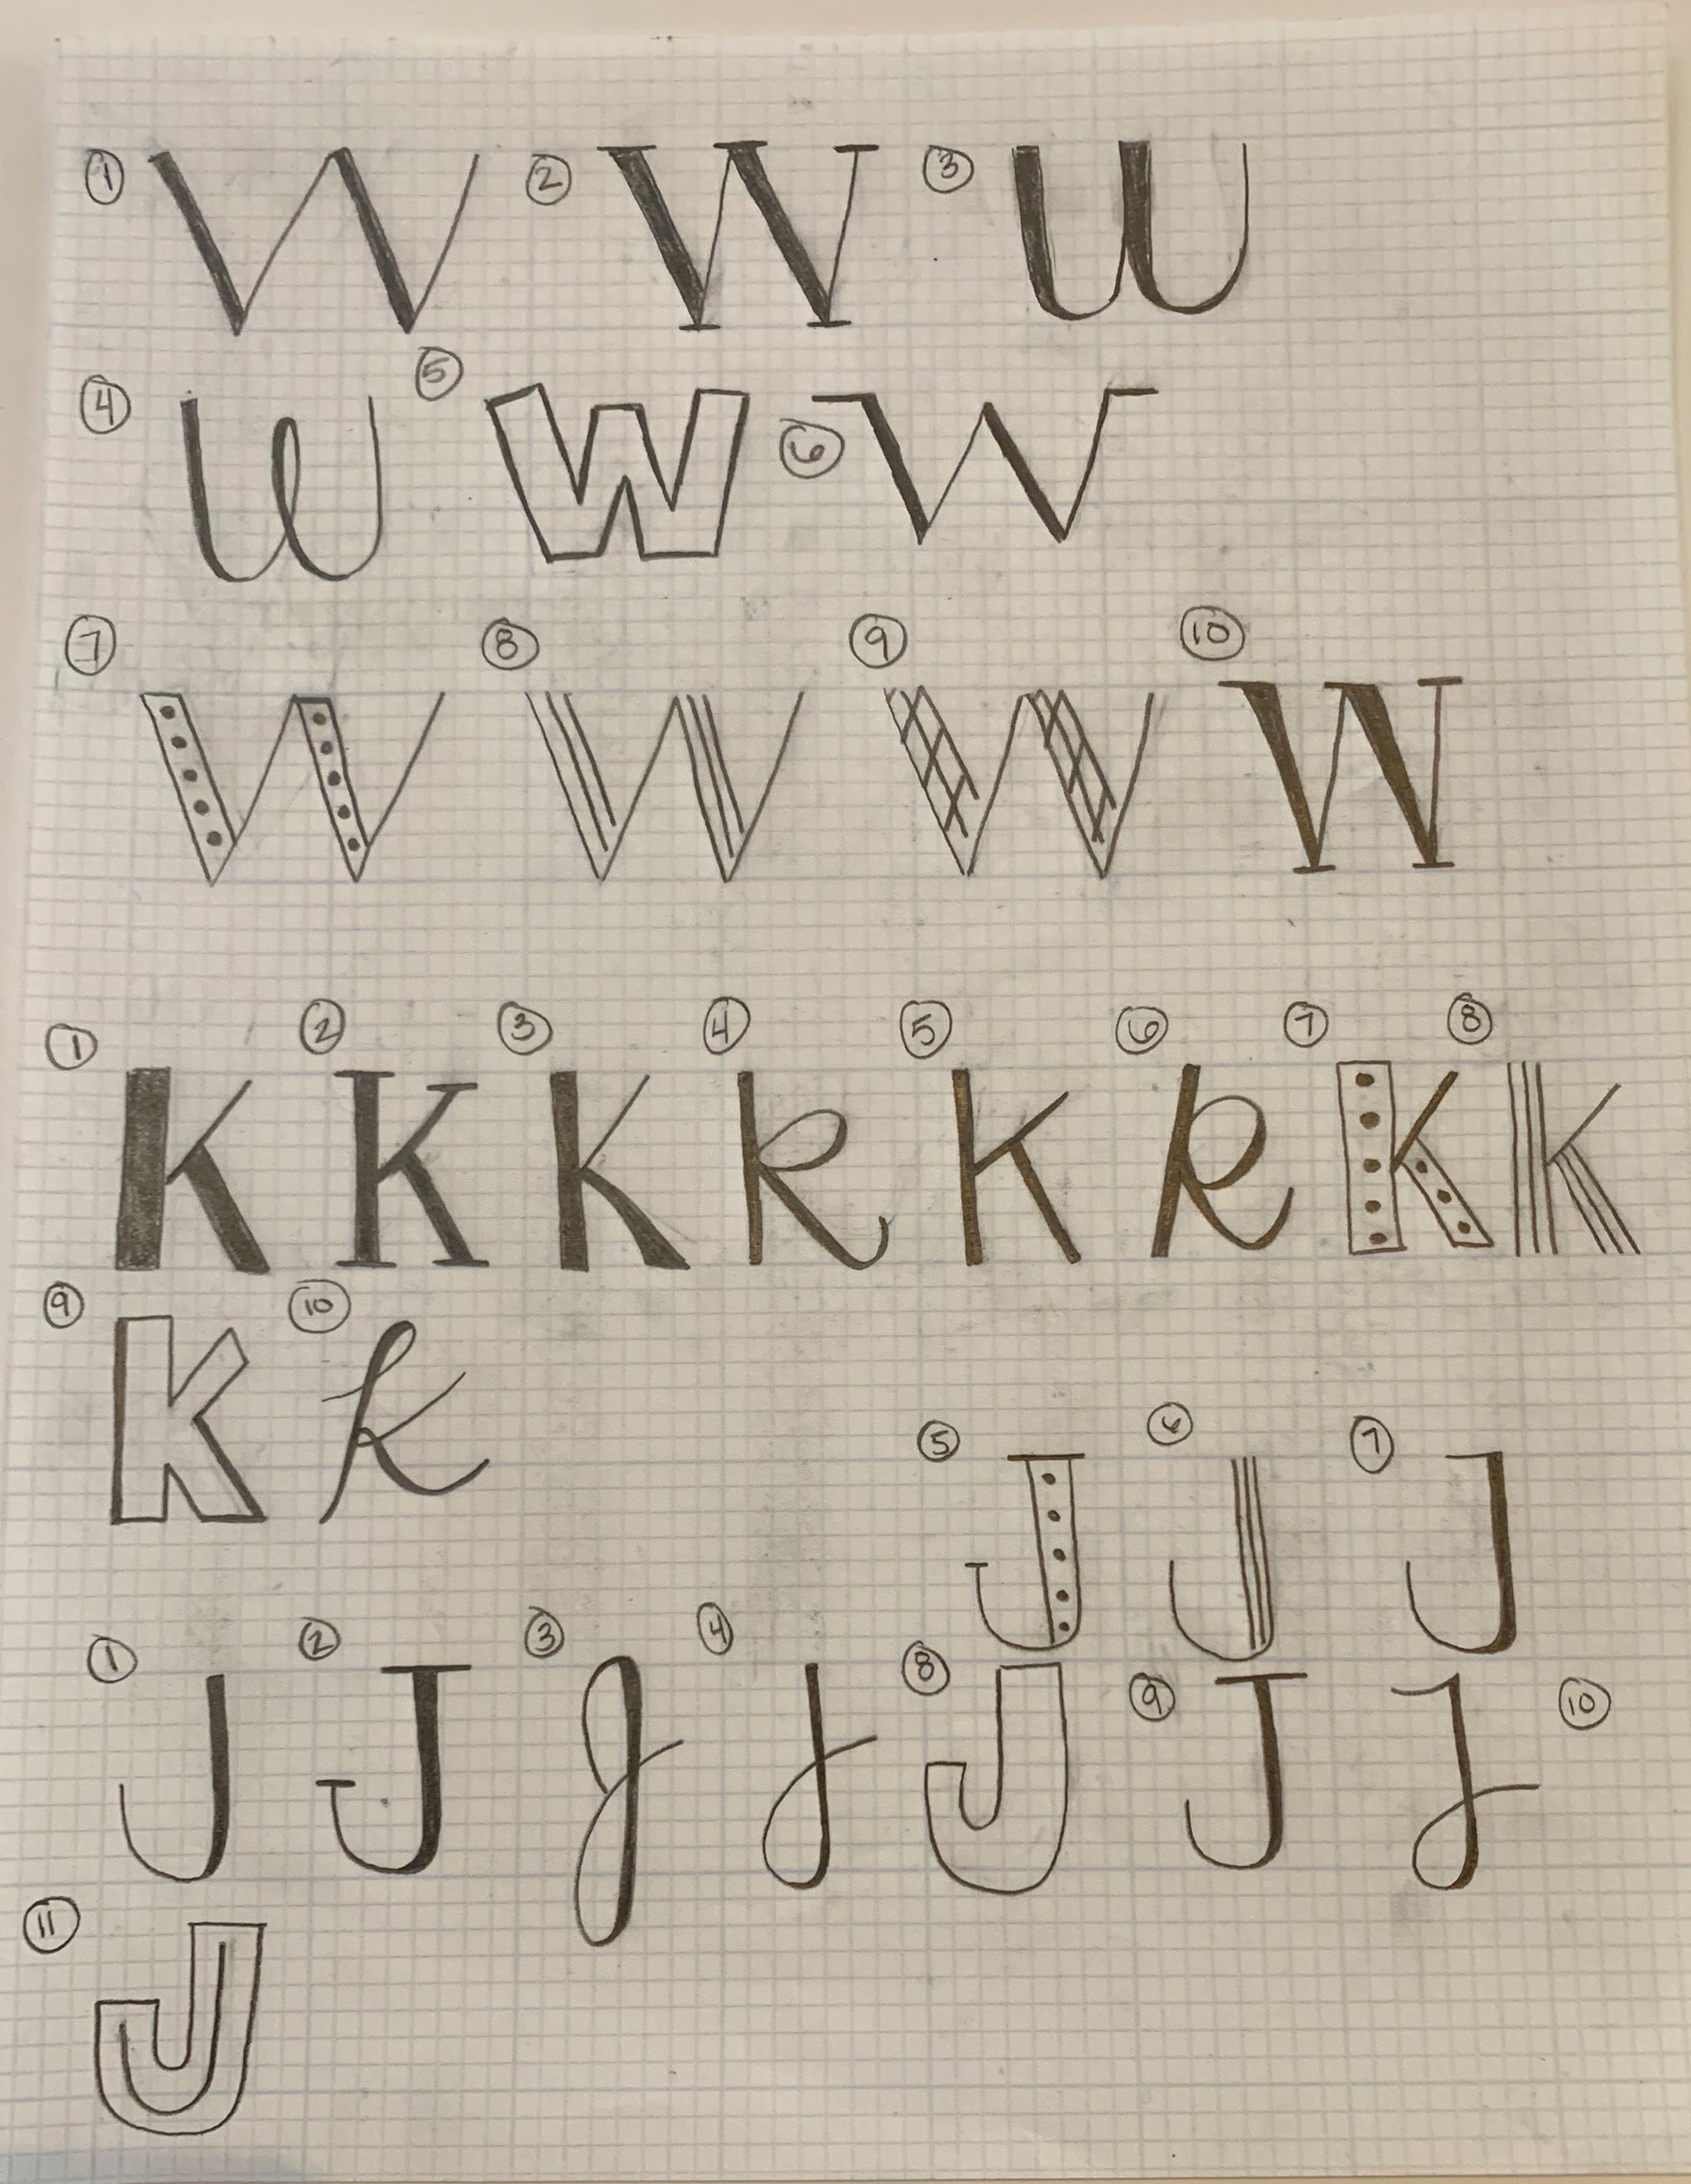 ① W ② W ③ W
④ W ⑤ W ⑥ W
⑦ W ⑧ W ⑨ W ⑩ W
① K ② K ③ K ④ K ⑤ K ⑥ K ⑦ K ⑧ K
⑨ K ⑩ K
⑤ J ⑥ J ⑦ J
① J ② J ③ J ④ J ⑧ J ⑨ J J ⑩
⑪ J